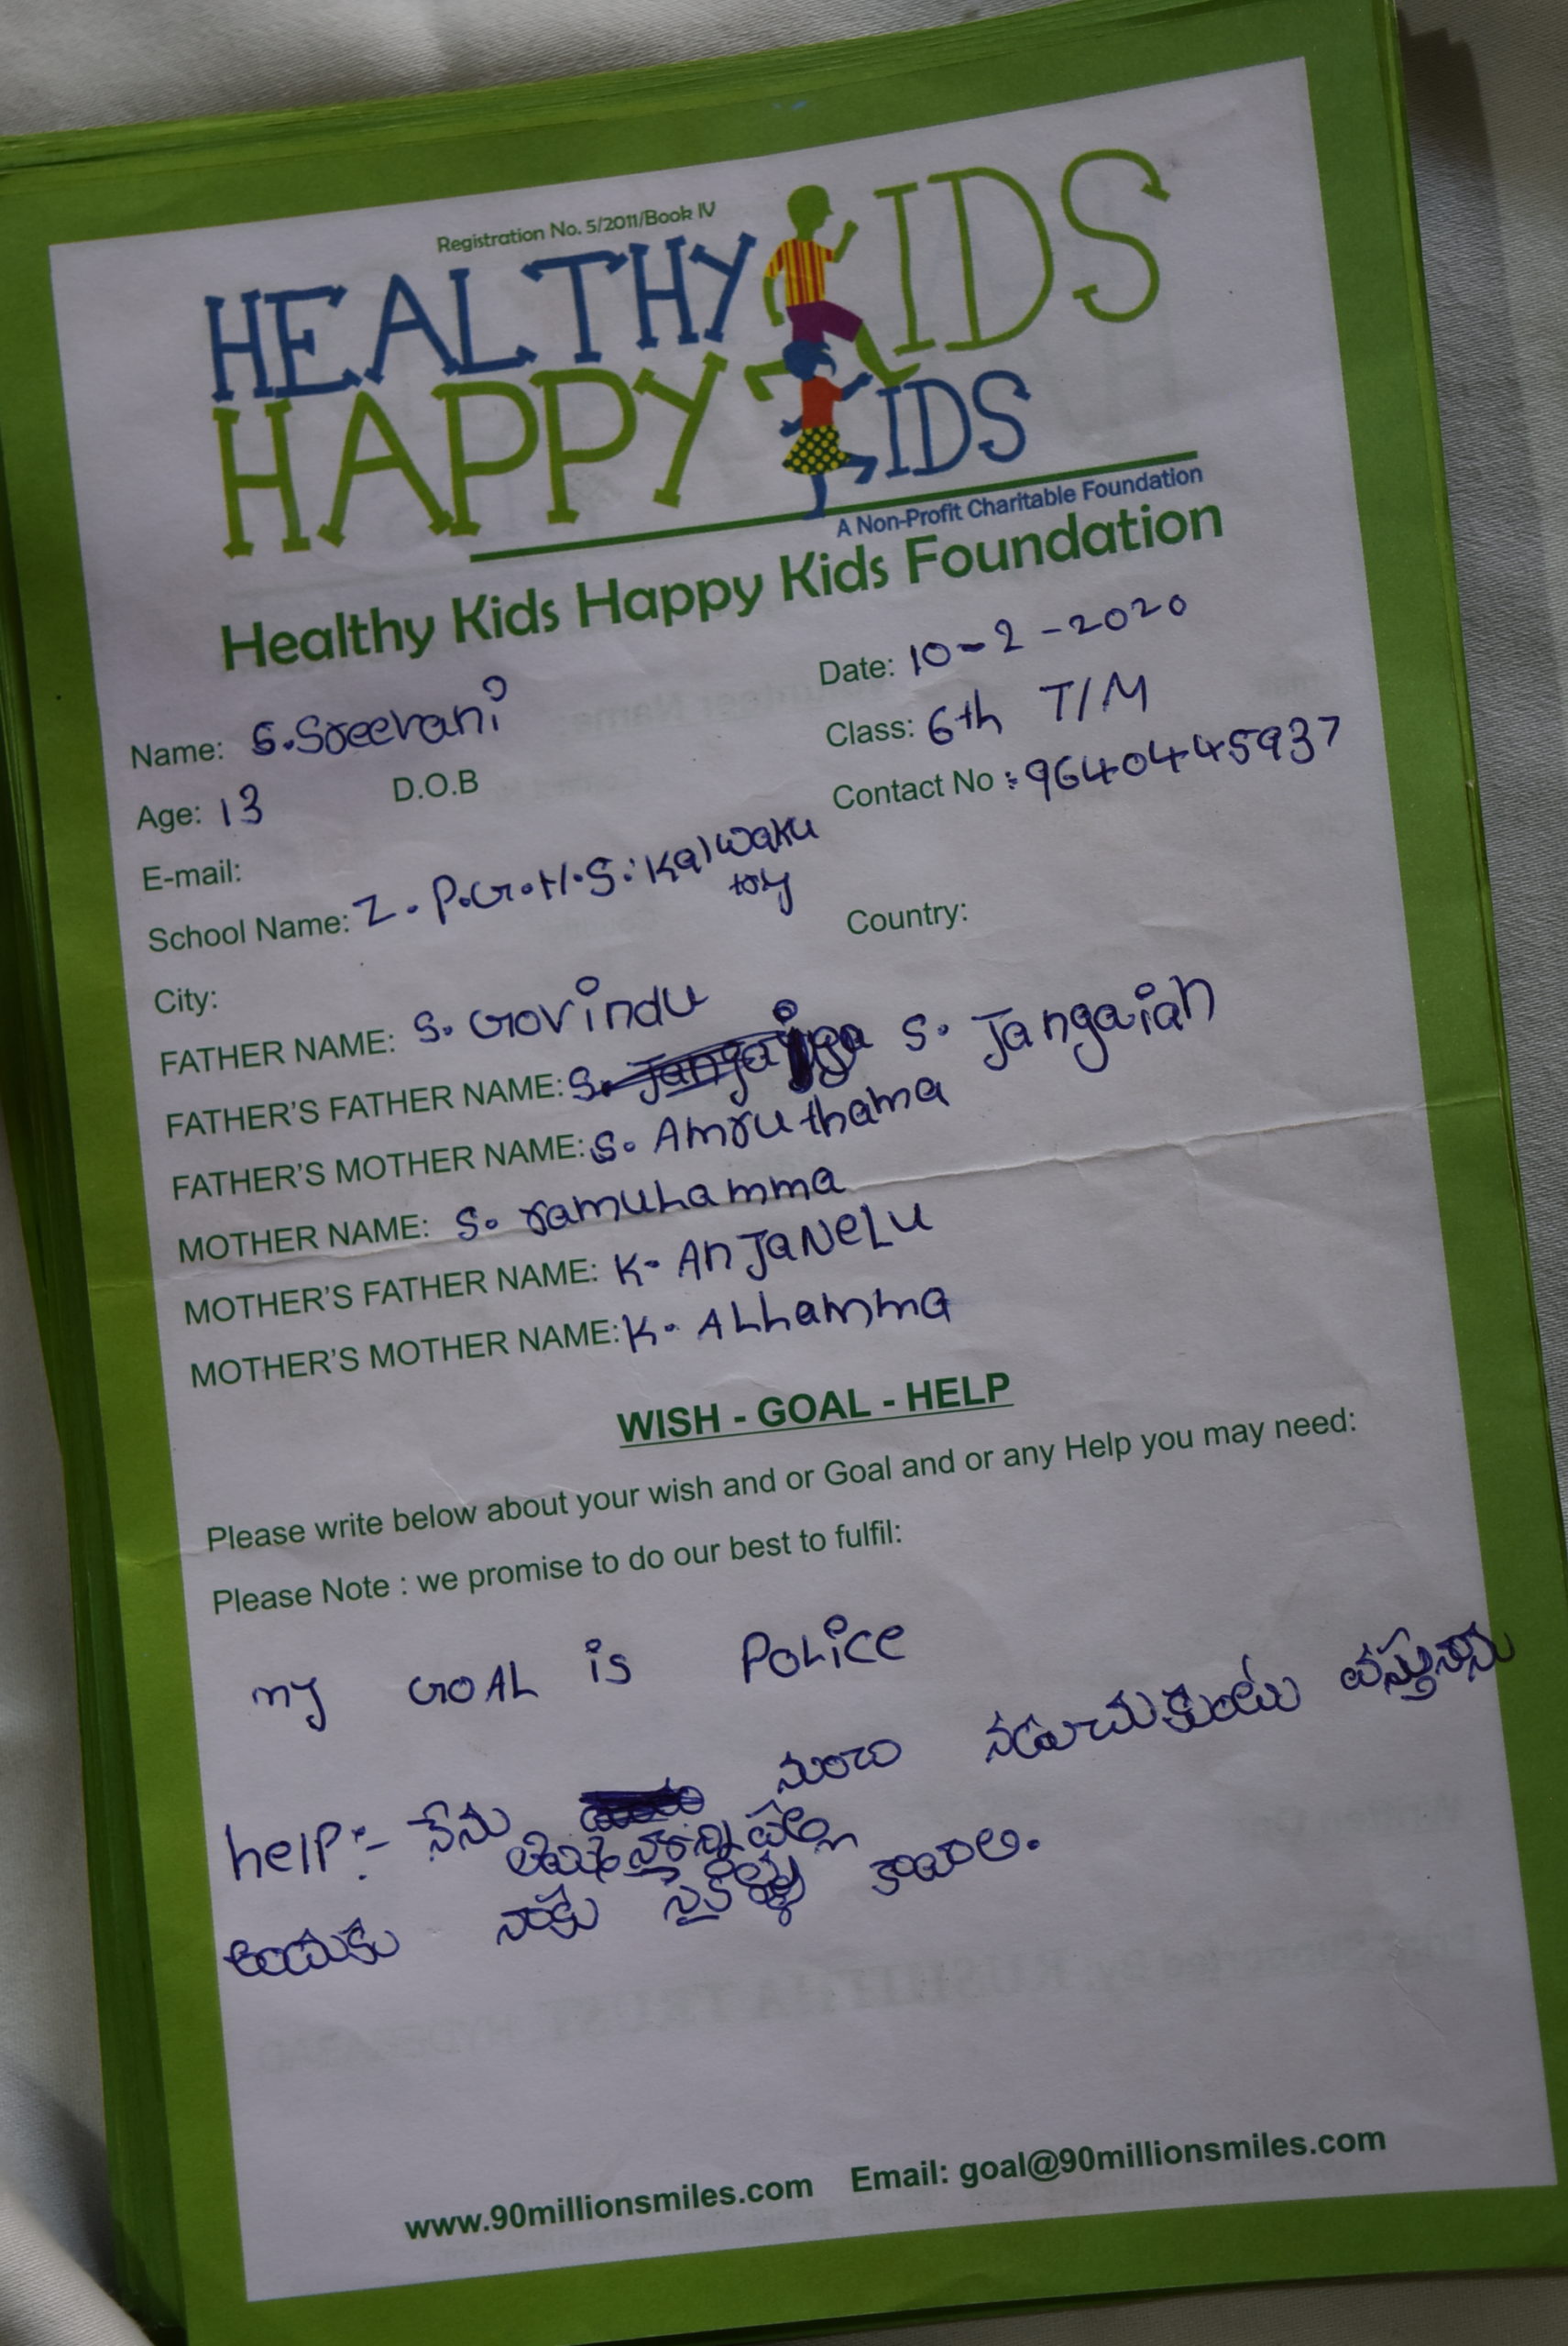 Registration No. 5/2011/Book IV
HEALTHY KIDS
HAPPY KIDS
A Non-Profit Charitable Foundation
Healthy Kids Happy Kids Foundation
Date: 10-2-2020
Name: S.Sreevani
Class: 6th T/M
Age: 13 D.O.B
Contact No : 9640445937
E-mail:
School Name: Z.P.G.H.S. Kalwaku
rty
Country:
City:
FATHER NAME: S. Govindu
FATHER'S FATHER NAME: S. Jangaiah
FATHER'S MOTHER NAME: S. Amruthama
MOTHER NAME: S. ramulamma
MOTHER'S FATHER NAME: K. AnJaNeLu
MOTHER'S MOTHER NAME: K. ALLamma
WISH - GOAL - HELP
Please write below about your wish and or Goal and or any Help you may need:
Please Note : we promise to do our best to fulfil:
my GOAL is POLICE
help:- నేను నుంచి నడుచుకుంటు వస్తునాను
అందుకు నాకు కావాలి.
www.90millionsmiles.com Email: goal@90millionsmiles.com